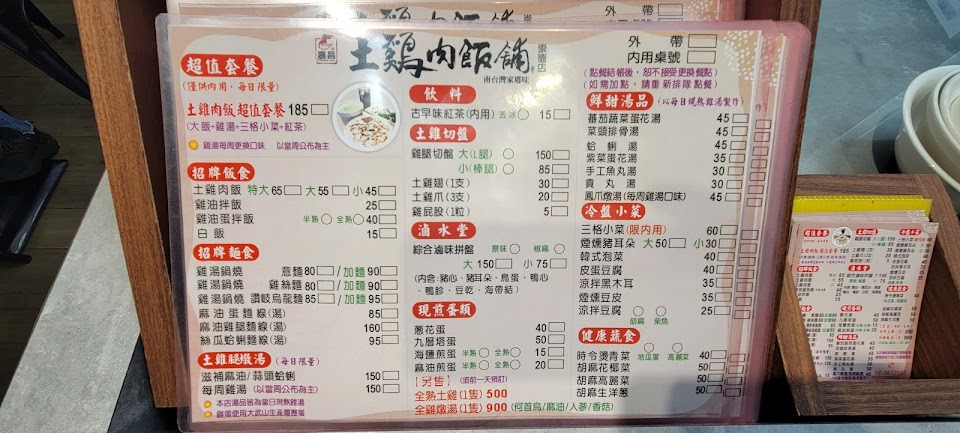 嘉昌
土雞肉飯舖
崇德店
南台灣家鄉味
外帶□
內用桌號□
(點餐結帳後,恕不接受更換餐點)
(如需加點,請重新排隊點餐)
超值套餐
(僅供內用‧每日限量)
土雞肉飯 超值套餐 185□
(大飯+雞湯+三格小菜+紅茶)
雞湯每周更換口味 以當周公布為主
招牌飯食
土雞肉飯 特大65□ 大55□ 小45□
雞油拌飯 25□
雞油蛋拌飯 半熟○ 全熟○ 40□
白飯 15□
招牌麵食
雞湯鍋燒 意麵80□/加麵90□
雞湯鍋燒 雞絲麵80□/加麵90□
雞湯鍋燒 讚岐烏龍麵85□/加麵95□
麻油蛋麵線(湯) 85□
麻油雞腿麵線(湯) 160□
絲瓜蛤蜊麵線(湯) 95□
土雞腿燉湯(每日限量)
滋補麻油/蒜頭蛤蜊 150□
每周雞湯(以當周公布為主) 150□
本店湯品皆為當日現熬雞湯
雞蛋使用大武山生產履歷蛋
飲料
古早味紅茶(內用) 去冰○ 15□
土雞切盤
雞腿切盤 大(L腿)○ 150□
小(棒腿)○ 85□
土雞翅(1支) 30□
土雞爪(3支) 20□
雞屁股(1粒) 5□
滷水堂
綜合滷味拼盤 原味○ 椒麻○
大150□ 小75□
(內含:豬心、豬耳朵、鳥蛋、鴨心
、鴨胗、豆乾、海帶結)
現煎蛋類
蔥花蛋 40□
九層塔蛋 50□
海鹽煎蛋 半熟○ 全熟○ 15□
麻油煎蛋 半熟○ 全熟○ 20□
【另售】(須前一天預訂)
全熟土雞(1隻) 500
全雞燉湯(1隻) 900 (何首烏/麻油/人蔘/香菇)
鮮甜湯品(以每日現熬雞湯製作)
蕃茄蔬菜蛋花湯 45□
菜頭排骨湯 45□
蛤蜊湯 45□
紫菜蛋花湯 35□
手工魚丸湯 35□
貢丸湯 30□
鳳爪燉湯(每周雞湯口味) 45□
冷盤小菜
三格小菜(限內用) 60□
煙燻豬耳朵 大50□ 小30□
韓式泡菜 40□
皮蛋豆腐 40□
涼拌黑木耳 35□
煙燻豆皮 35□
涼拌豆腐 ○胡麻 ○柴魚 35□
健康蔬食
時令燙青菜 ○地瓜菜 ○高麗菜 40□
胡麻花椰菜 40□
胡麻高麗菜 40□
胡麻生洋蔥 40□